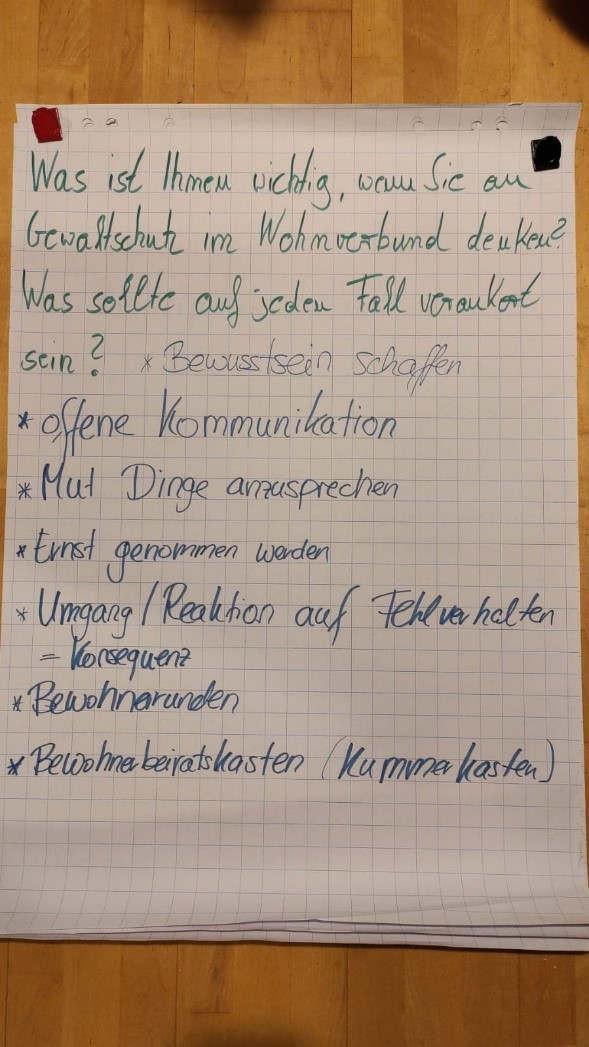 Was ist Ihnen wichtig, wenn Sie an
Gewaltschutz im Wohnverbund denken?
Was sollte auf jeden Fall verankert
sein? * Bewusstsein schaffen
* offene Kommunikation
* Mut Dinge anzusprechen
* Ernst genommen werden
* Umgang / Reaktion auf Fehlverhalten
= Konsequenz
* Bewohnerrunden
* Bewohnerbeiratskasten (Kummerkasten)